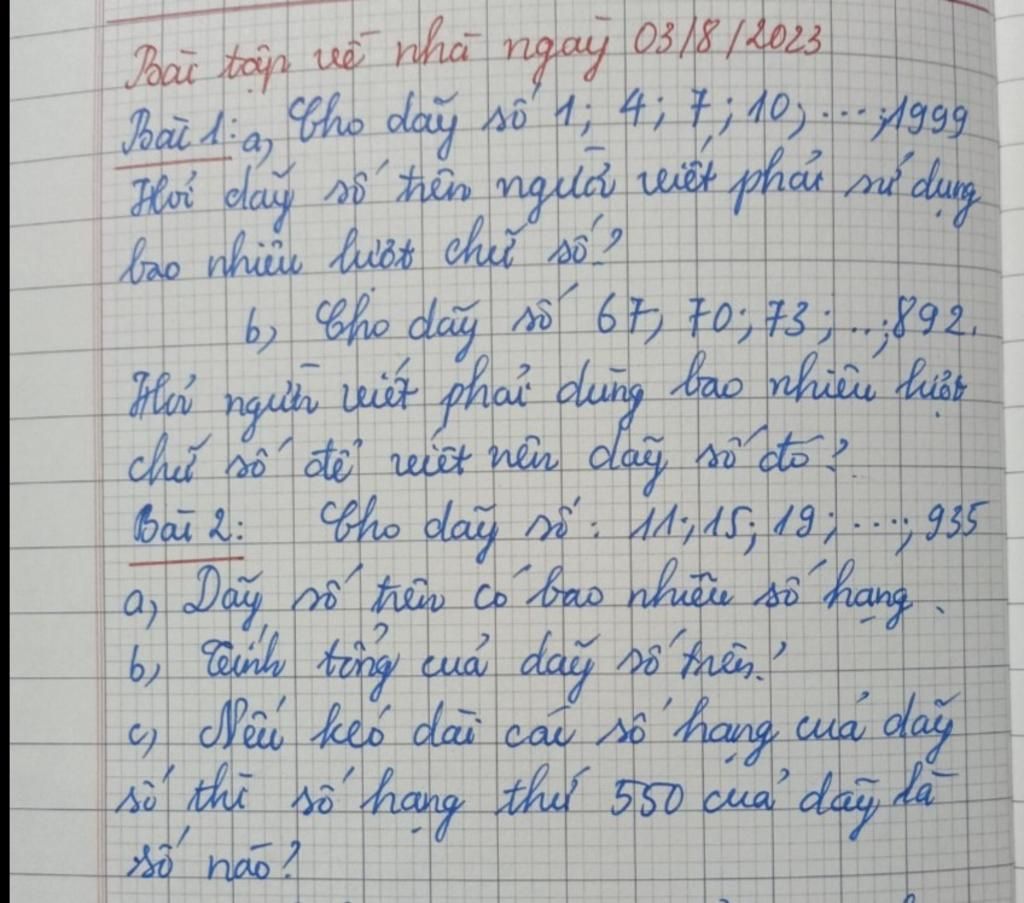 Bài tập về nhà ngày 03/8/2023
Bài 1: a, Cho dãy số 1; 4; 7; 10; ...; 1999
Hỏi dãy số trên người viết phải sử dụng
bao nhiêu lượt chữ số?
b, Cho dãy số 67; 70; 73; ...; 892.
Hỏi người viết phải dùng bao nhiêu lượt
chữ số để viết nên dãy số đó?
Bài 2: Cho dãy số: 11; 15; 19; ...; 935
a, Dãy số trên có bao nhiêu số hạng.
b, Tính tổng của dãy số trên?
c, Nếu kéo dài các số hạng của dãy
số thì số hạng thứ 550 của dãy là
số nào?